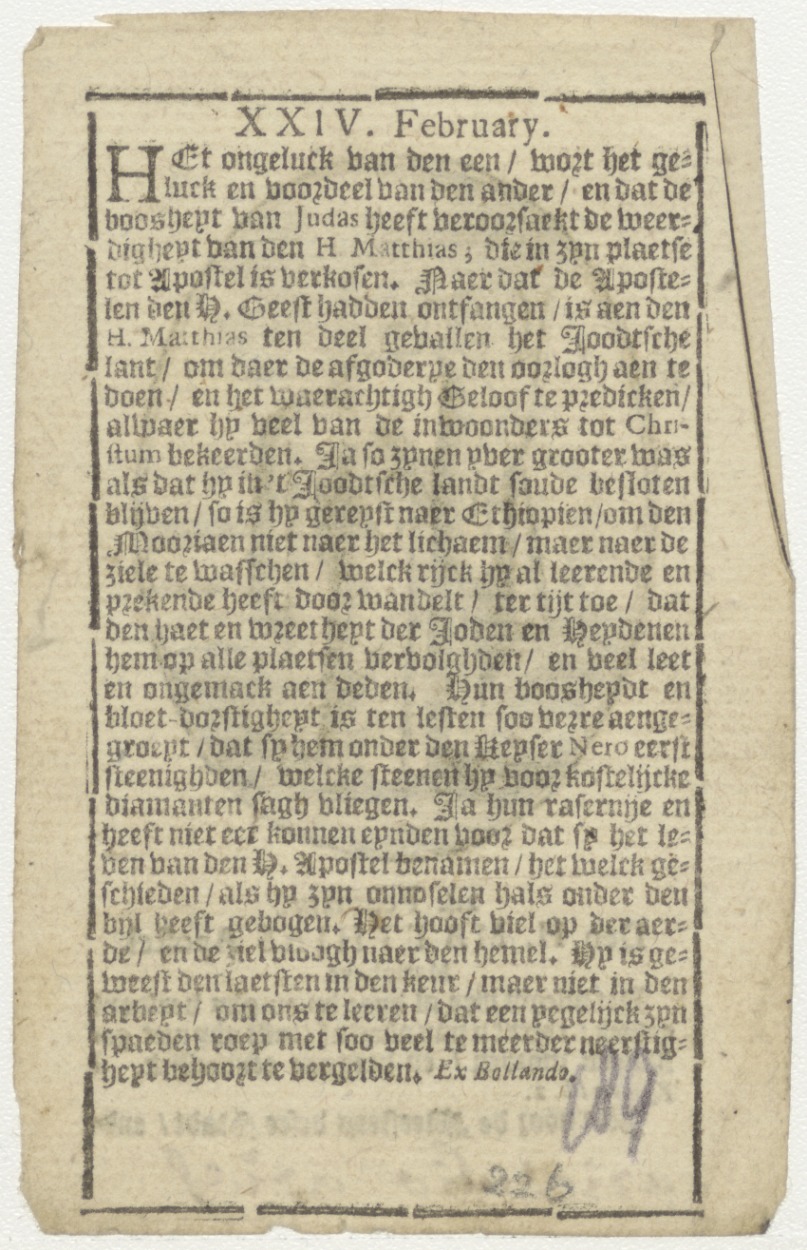 XXIV. February.
HEt ongeluck van den een / wort het ge-
luck en voordeel van den ander / en dat de
boosheyt van Judas heeft veroorsaekt de weer-
digheyt van den H Matthias; die in zyn plaetse
tot Apostel is verkosen. Naer dat de Aposte-
len den H. Geest hadden ontfangen / is aen den
H. Matthias ten deel gevallen het Joodtsche
lant / om daer de afgoderye den oorlogh aen te
doen / en het waerachtigh Geloof te predicken /
alwaer hy veel van de inwoonders tot Chri-
stum bekeerden. Ja so zynen yver grooter was
als dat hy in 't Joodtsche landt soude besloten
blijven / so is hy gereyst naer Ethiopien / om den
Mooriaen niet naer het lichaem / maer naer de
ziele te wasschen / welck rijck hy al leerende en
prekende heeft doorwandelt / ter tijt toe / dat
den haet en wreetheyt der Joden en Heydenen
hem op alle plaetsen vervolghden / en veel leet
en ongemack aen deden. Hun boosheydt en
bloet-dorstigheyt is ten lesten soo verre aenge-
groeyt / dat sy hem onder den Keyser Nero eerst
steenighden / welcke steenen hy voor kostelijcke
diamanten sagh vliegen. Ja hun rasernije en
heeft niet eer konnen eynden voor dat sy het le-
ven van den H. Apostel benamen / het welck ge-
schieden / als hy zyn onnoselen hals onder den
byl heeft gebogen. Het hooft viel op der aer-
de / en de ziel vloogh naer den hemel. Hy is ge-
weest den laetsten in den keur / maer niet in den
arbeyt / om ons te leeren / dat een yegelijck zyn
spaeden roep met soo veel te meerder neerstig-
heyt behoort te vergelden. Ex Bollando.
189
226